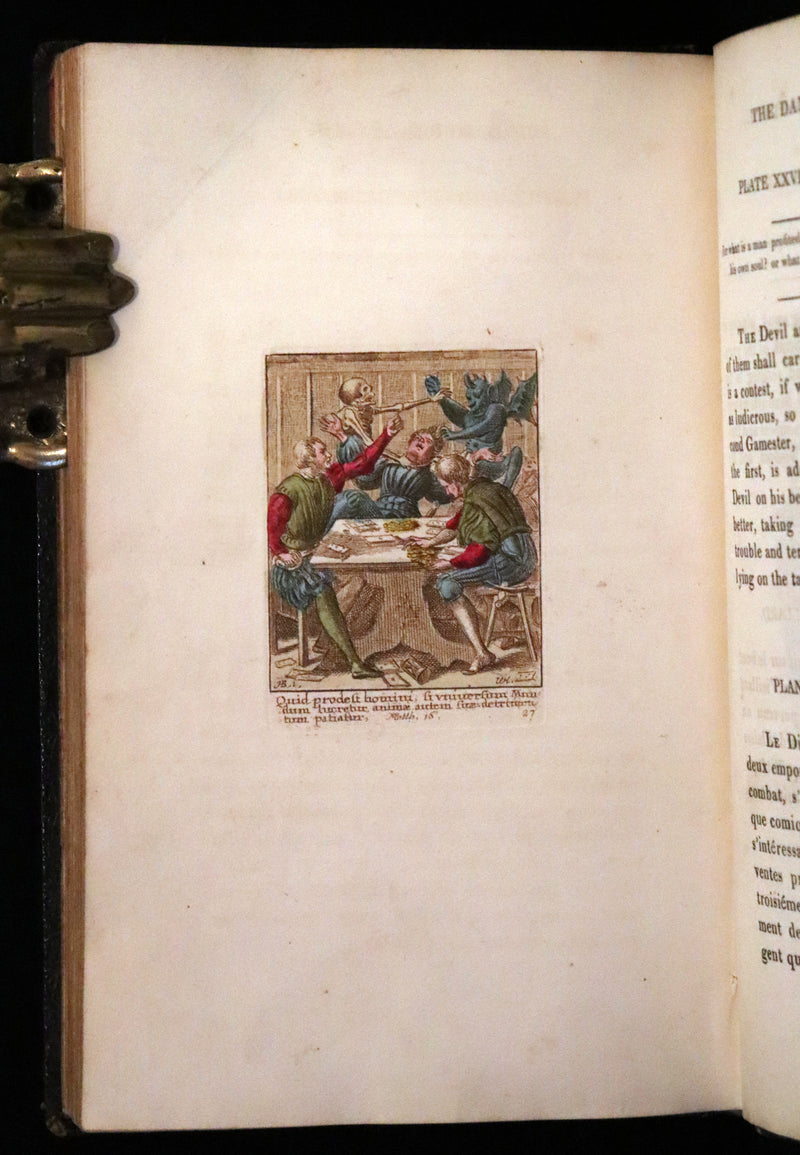 HB. i.
Quid prodest homini, si vniversum Mun
dum lucretur, animæ autem suæ detrimen
tum patiatur, Matth. 16.
27
THE DAN
PLATE XXVI
For what is a man profited
his own soul? or what
THE Devil a
of them shall car
is a contest, if w
as ludicrous, so
cond Gamester,
the first, is ad
Devil on his be
better, taking
trouble and ter
lying on the ta
PLAN
LE Di
deux empo
combat, s'
que comic
s'intéressa
ventes pr
troisiéme
ment de
gent qu